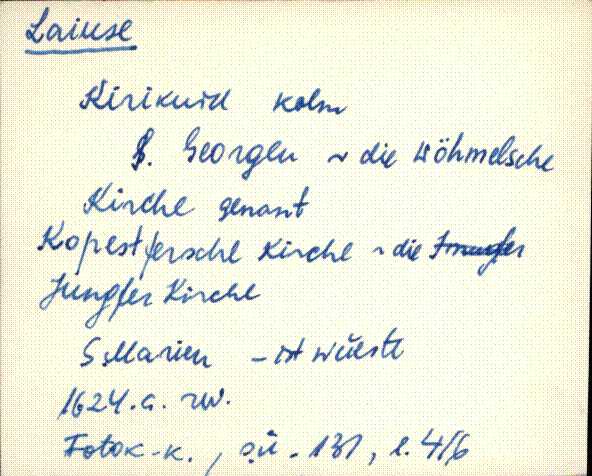 Laiuse
Kirikuid kolm
S. Georgen ~ die Wöhmelsche
Kirche genant
Kopestfersche Kirche ~ die
Jungfer Kirche
S. Marien – ist wüeste
1624.a. rev.
Fotok-k., sü. 131, l. 4/6